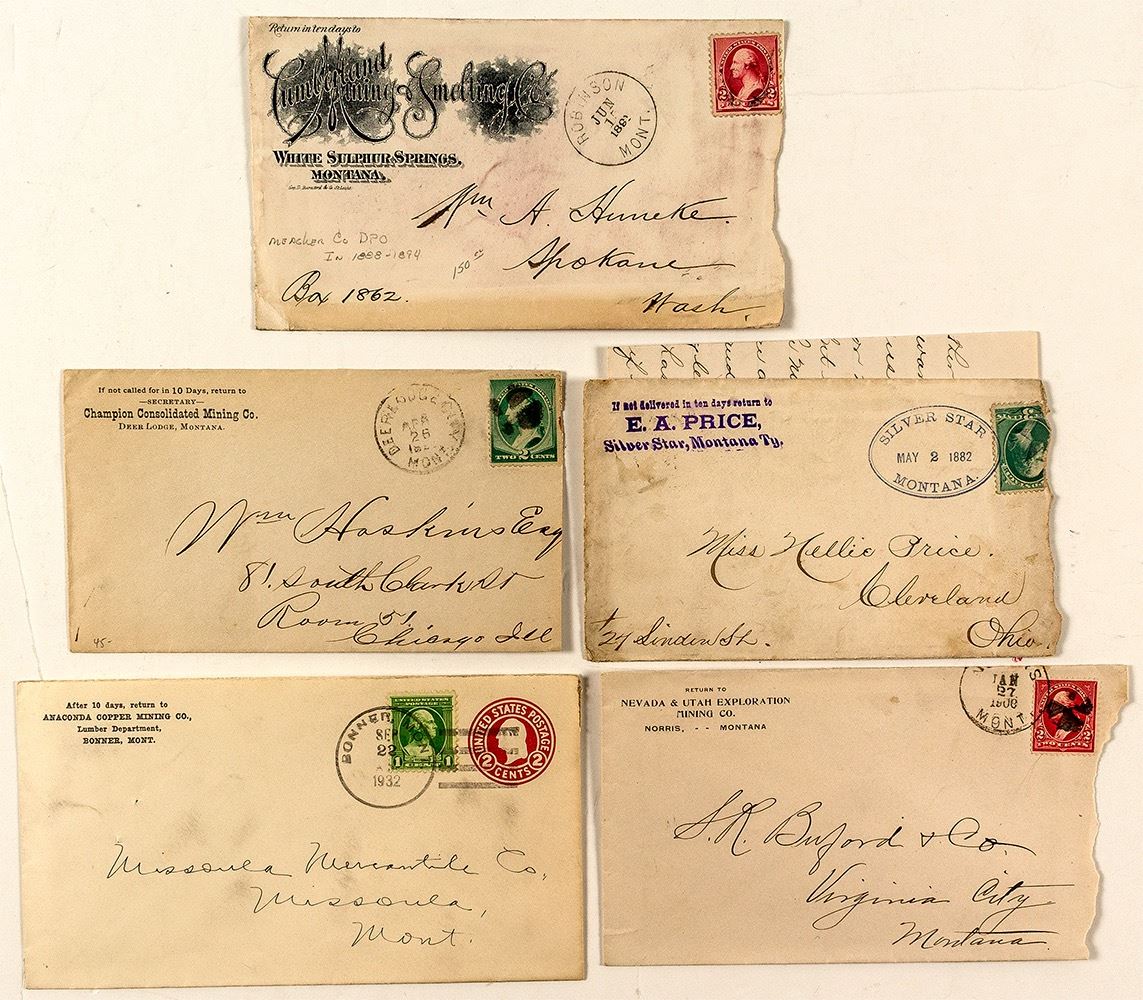 Return in ten days to
Cumberland
Mining & Smelting Co.
WHITE SULPHUR SPRINGS,
MONTANA.
ROBINSON
JUN
MONT.
2
Wm A. Huneke.
Spokane
Wash.
Box 1862.
MEAGHER Co DPO
IN 1888-1894
150
If not called for in 10 Days, return to
—SECRETARY—
Champion Consolidated Mining Co.
DEER LODGE, MONTANA.
DEER LODGE CITY
APR
26
MONT.
TWO 2 CENTS
Wm Hoskins Esq
81 South Clark St
Room 51
Chicago Ill
45-
If not delivered in ten days return to
E. A. PRICE,
Silver Star, Montana Ty.
SILVER STAR
MAY 2 1882
MONTANA.
Miss Nellie Price.
Cleveland
Ohio.
Linden St.
After 10 days, return to
ANACONDA COPPER MINING CO.,
Lumber Department,
BONNER, MONT.
BONNER
SEP
1932
UNITED STATES POSTAGE
1 CENT 1
UNITED STATES POSTAGE
2 CENTS 2
Missoula Mercantile Co,
Missoula,
Mont.
RETURN TO
NEVADA & UTAH EXPLORATION
MINING CO.
NORRIS, - - MONTANA
JAN
27
MONT.
TWO CENTS
S. R. Buford & Co.
Virginia City
Montana